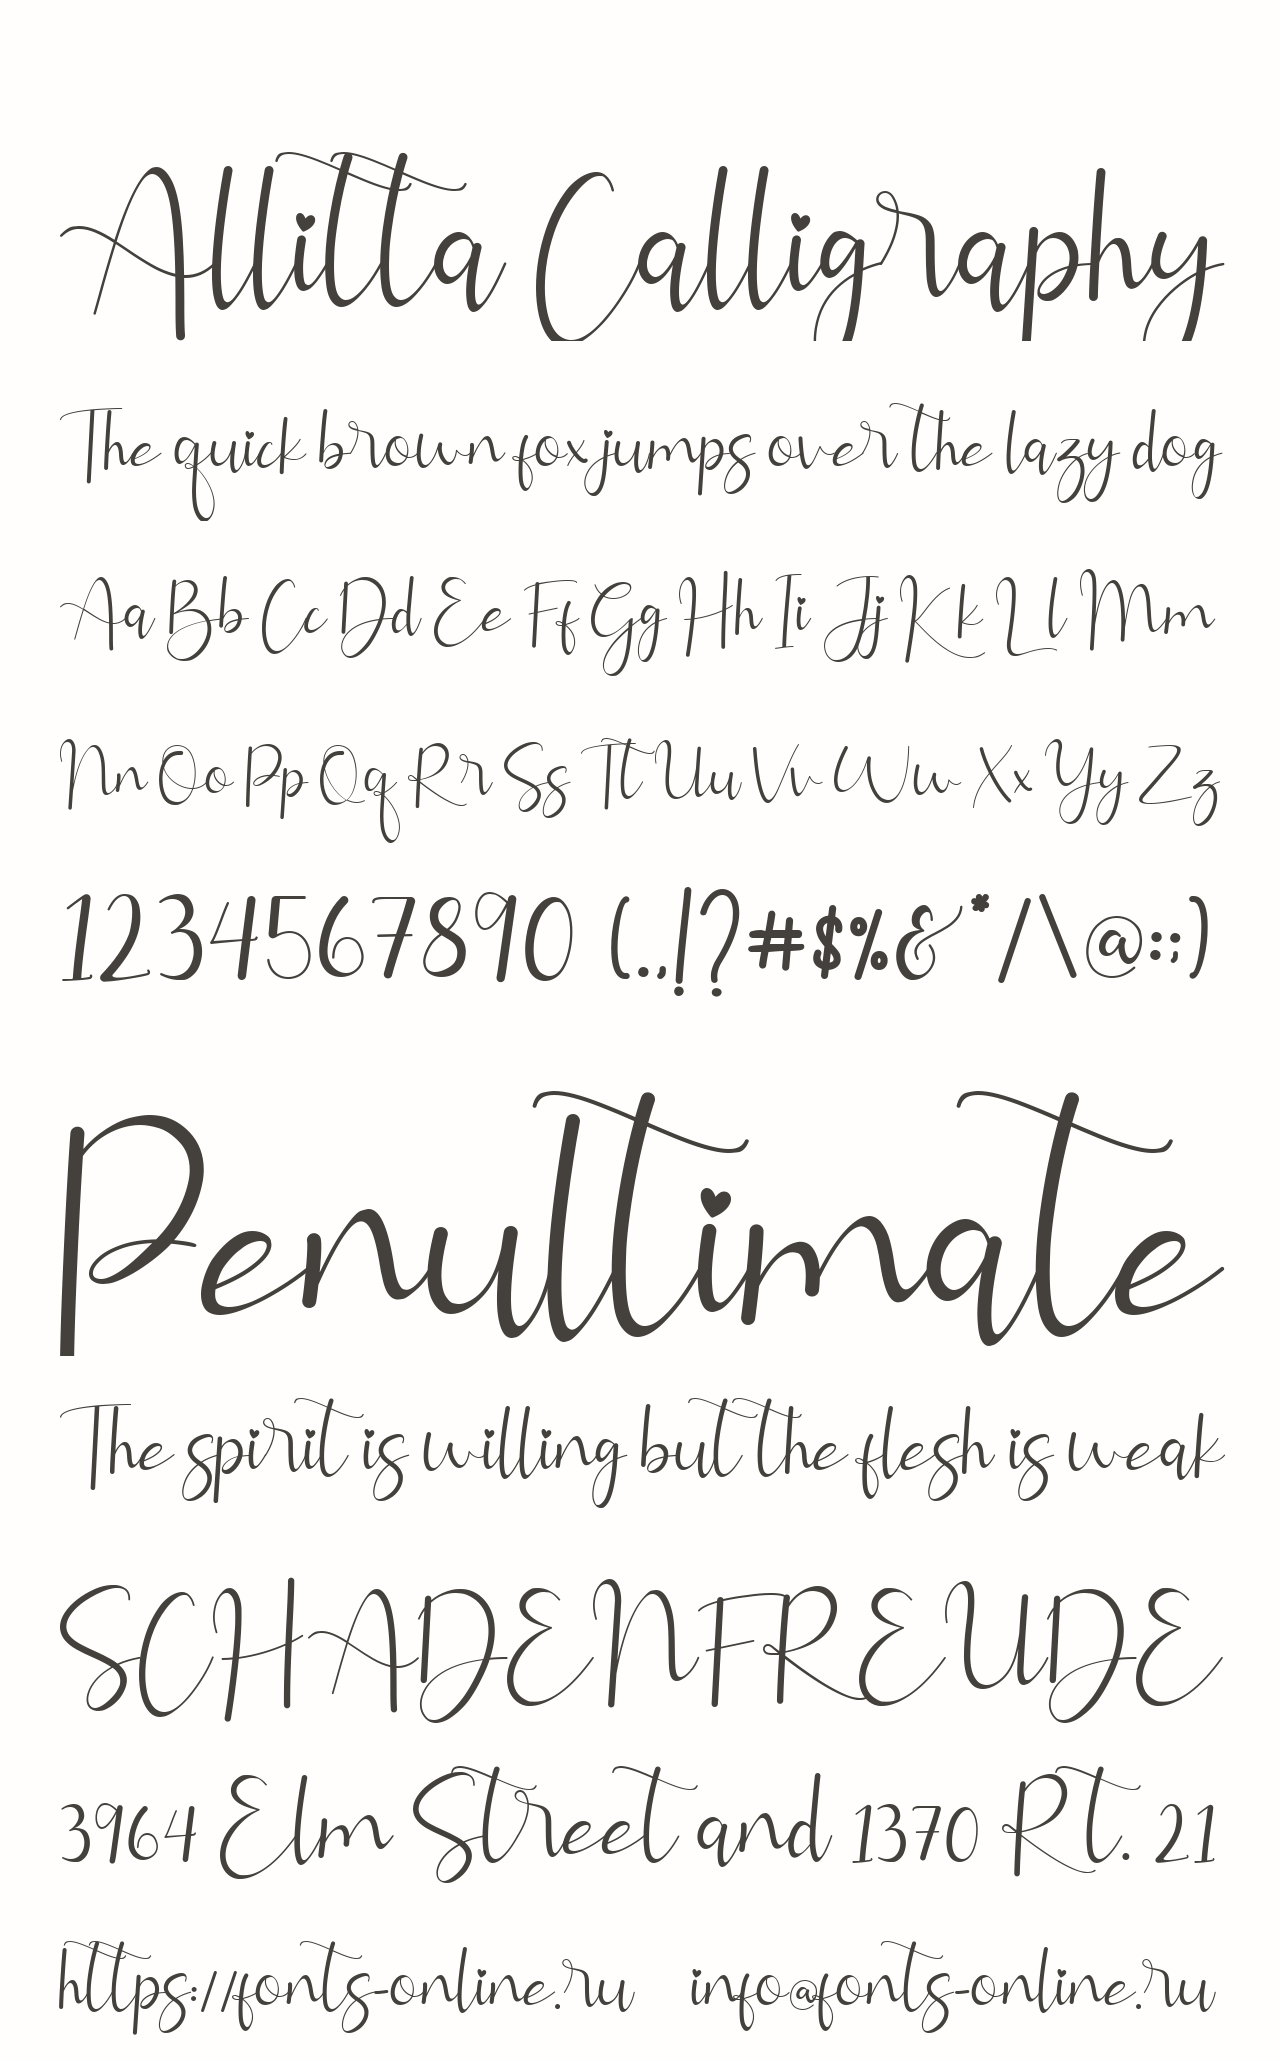 Allitta Calligraphy
The quick brown fox jumps over the lazy dog
Aa Bb Cc Dd Ee Ff Gg Hh Ii Jj Kk Ll Mm
Nn Oo Pp Qq Rr Ss Tt Uu Vv Ww Xx Yy Zz
1234567890 (.,!?#$%&*/\@:;)
Penultimate
The spirit is willing but the flesh is weak
SCHADENFREUDE
3964 Elm Street and 1370 Rt. 21
https://fonts-online.ru info@fonts-online.ru